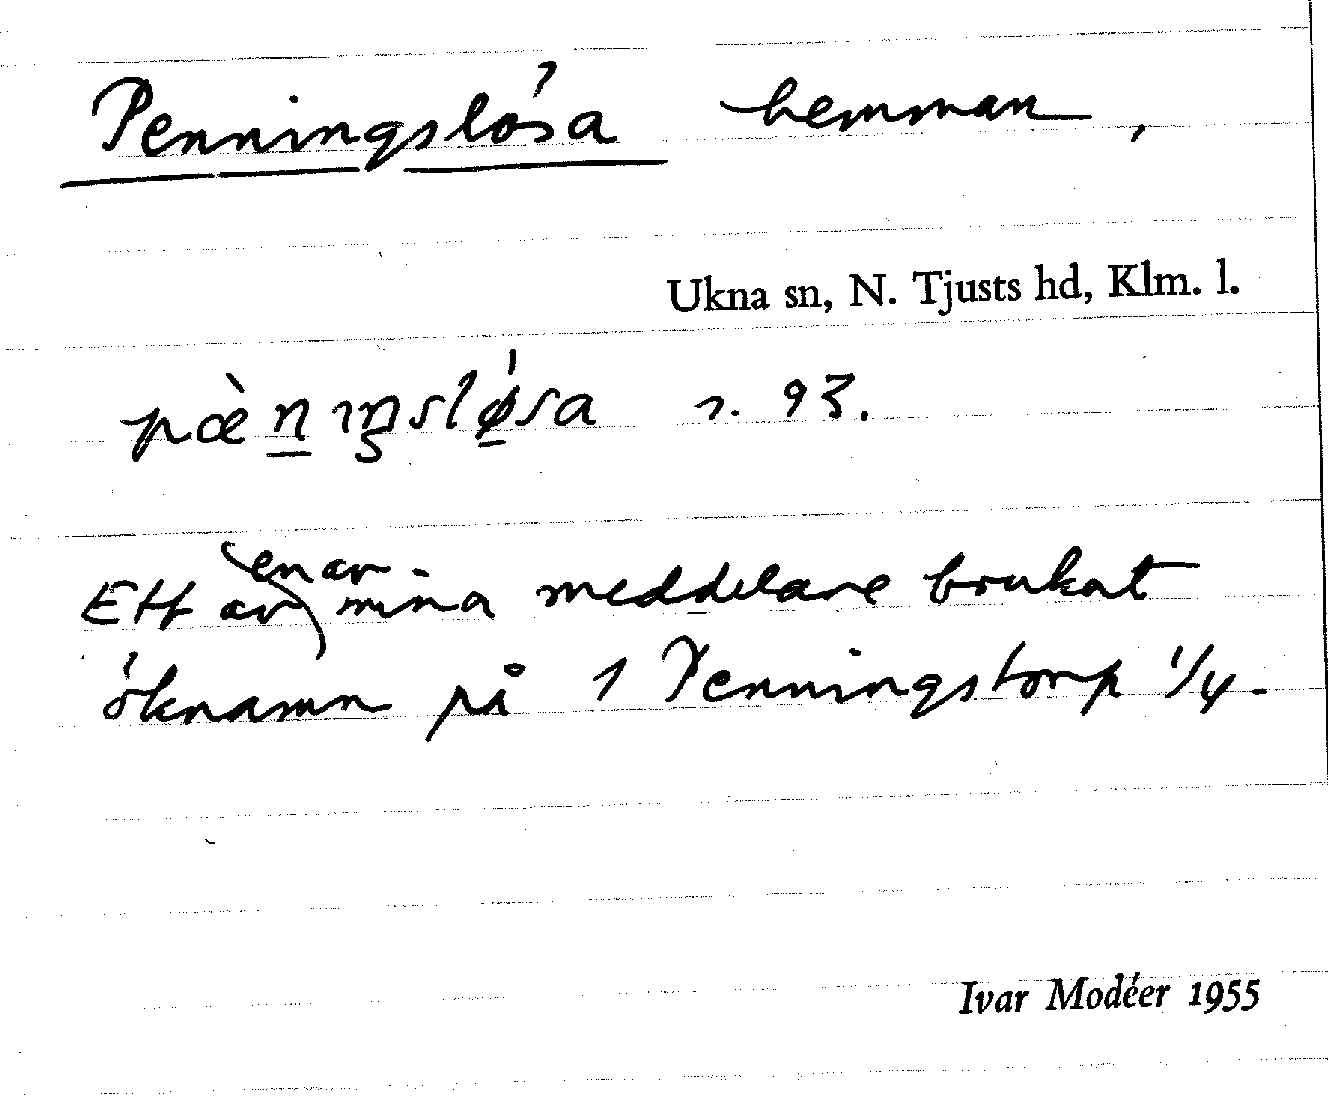 Penningslösa hemman,
Ukna sn, N. Tjusts hd, Klm. l.
pæ̀n̠ıŋslǿ̠sa r. 93.
Ett av en av mina meddelare brukat
öknamn på 1 Penningstorp 1/4.
Ivar Modéer 1955